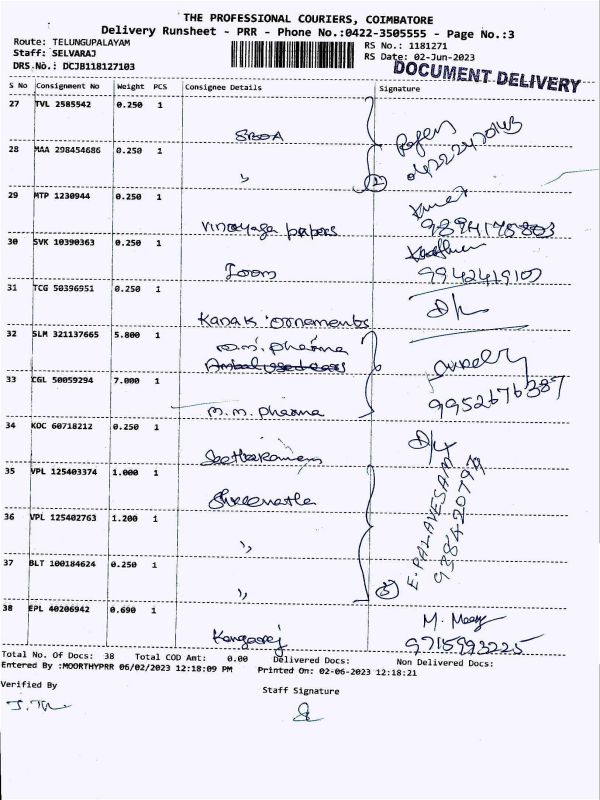 THE PROFESSIONAL COURIERS, COIMBATORE
Delivery Runsheet - PRR - Phone No.:0422-3505555 - Page No.:3
Route: TELUNGUPALAYAM
Staff: SELVARAJ
DRS.No.: DCJB118127103
RS No.: 1181271
RS Date: 02-Jun-2023
DOCUMENT DELIVERY
S No Consignment No Weight PCS Consignee Details Signature
27 TVL 2585542 0.250 1
28 MAA 298454686 0.250 1
"
2
29 MTP 1230944 0.250 1
Vinayaga papers
30 SVK 10390363 0.250 1
9942419107
31 TCG 50396951 0.250 1
Kanak ornaments
D/L
32 SLM 321137665 5.800 1
m.m. pharma
33 CGL 50059294 7.000 1
m.m. pharma
9952676387
34 KOC 60718212 0.250 1
Seetharamam
D/L
35 VPL 125403374 1.000 1
Shreenatha
36 VPL 125402763 1.200 1
"
E. PALAVESAM
37 BLT 100184624 0.250 1
"
3
38 EPL 40206942 0.690 1
Kangaraj
9715993225
Total No. Of Docs: 38 Total COD Amt: 0.00 Delivered Docs: Non Delivered Docs:
Entered By :MOORTHYPRR 06/02/2023 12:18:09 PM Printed On: 02-06-2023 12:18:21
Verified By
Staff Signature